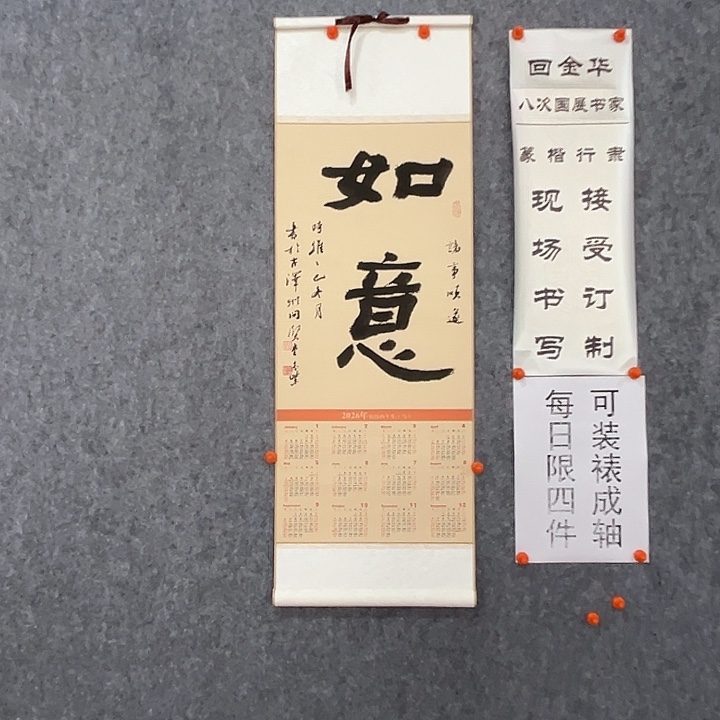 如意
諸事順遂
時維乙巳冬月
書於古澤州問
2026年
回金华
八次国展书家
篆楷行隶
接受订制
现场书写
可装裱成轴
每日限四件